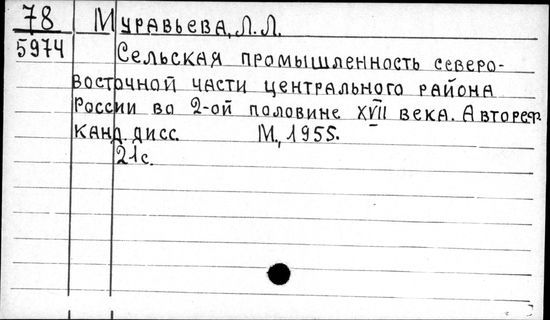 78 Муравьева, Л.Л.
5974 Сельская промышленность северо-
восточной части центрального района
России во 2-ой половине XVII века. Автореф.
канд. дисс. М., 1955.
21с.